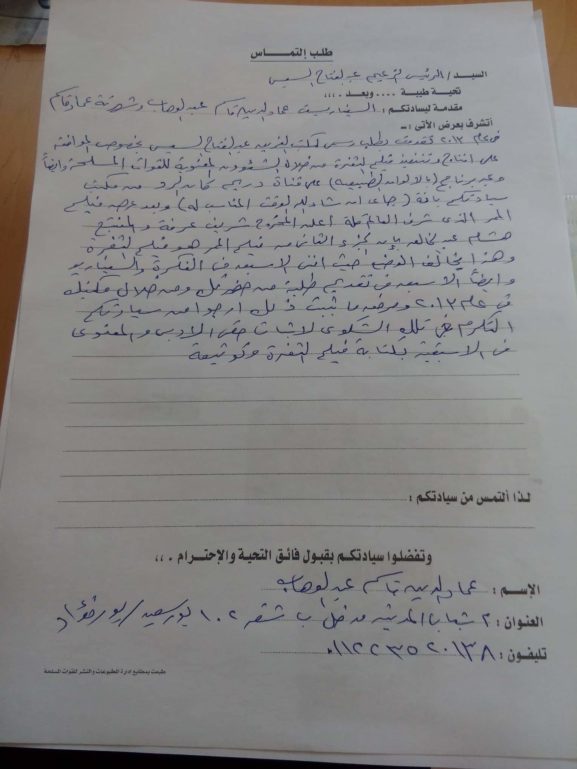 طلب إلتمـــاس
السيد / الرئيس الزعيم عبد الفتاح السيسى
تحية طيبة .... وبعد ،،،،
مقدمة لسيادتكم : السيناريست عماد الدين قاسم عبد الوهاب وشهرتة عماد قاسم
أتشرف بعرض الآتى :ـ
فى عام ٢٠١٣ تقدمت بطلب رسمى لمكتب الفريق عبد الفتاح السيسى بخصوص الموافقة
على إنتاج وتنفيذ فيلم الثغرة من خلال الشؤون المعنوية للقوات المسلحة وأيضاً
برنامج (بالألوان الطبيعية) على قناة دريم كان الرد من مكتب
سيادتكم بأنة (جاى ان شاء الله الوقت المناسب له) وبعد عرض فيلم
الممر الذى شرف العالم كلة أعلن المخرج شريف عرفة والمنتج
هشام عبد الخالق بأن الجزء الثانى من فيلم الممر هو فيلم الثغرة
وهذا يخالف الوضع حيث اننى الاسبق فى الفكرة والسيناريو
وايضاً الاسبق فى تقديم طلب من خلال مكتبك
فى عام ٢٠١٣ ما يثبت ذلك ارجوا من سيادتكم
التكرم فى تلك الشكوى لاثبات حقى الادبى والمعنوى
فى الاسبقية بكتابة فيلم الثغرة وتوثيقة
لـذا ألتمـس من سيادتكـم :
وتفضلوا سيادتكم بقبول فائق التحية والإحتـرام . ،،
الإسـم : عماد الدين قاسم عبد الوهاب
العنوان : ٢ شباب المدينة مدخل ب شقة ١٠٢ بورسعيد / بورفؤاد
تليفون : ٠١١٢٢٣٥٢٠١٣٨
طبعت بمطابع ادارة المطبوعات والنشر للقوات المسلحة